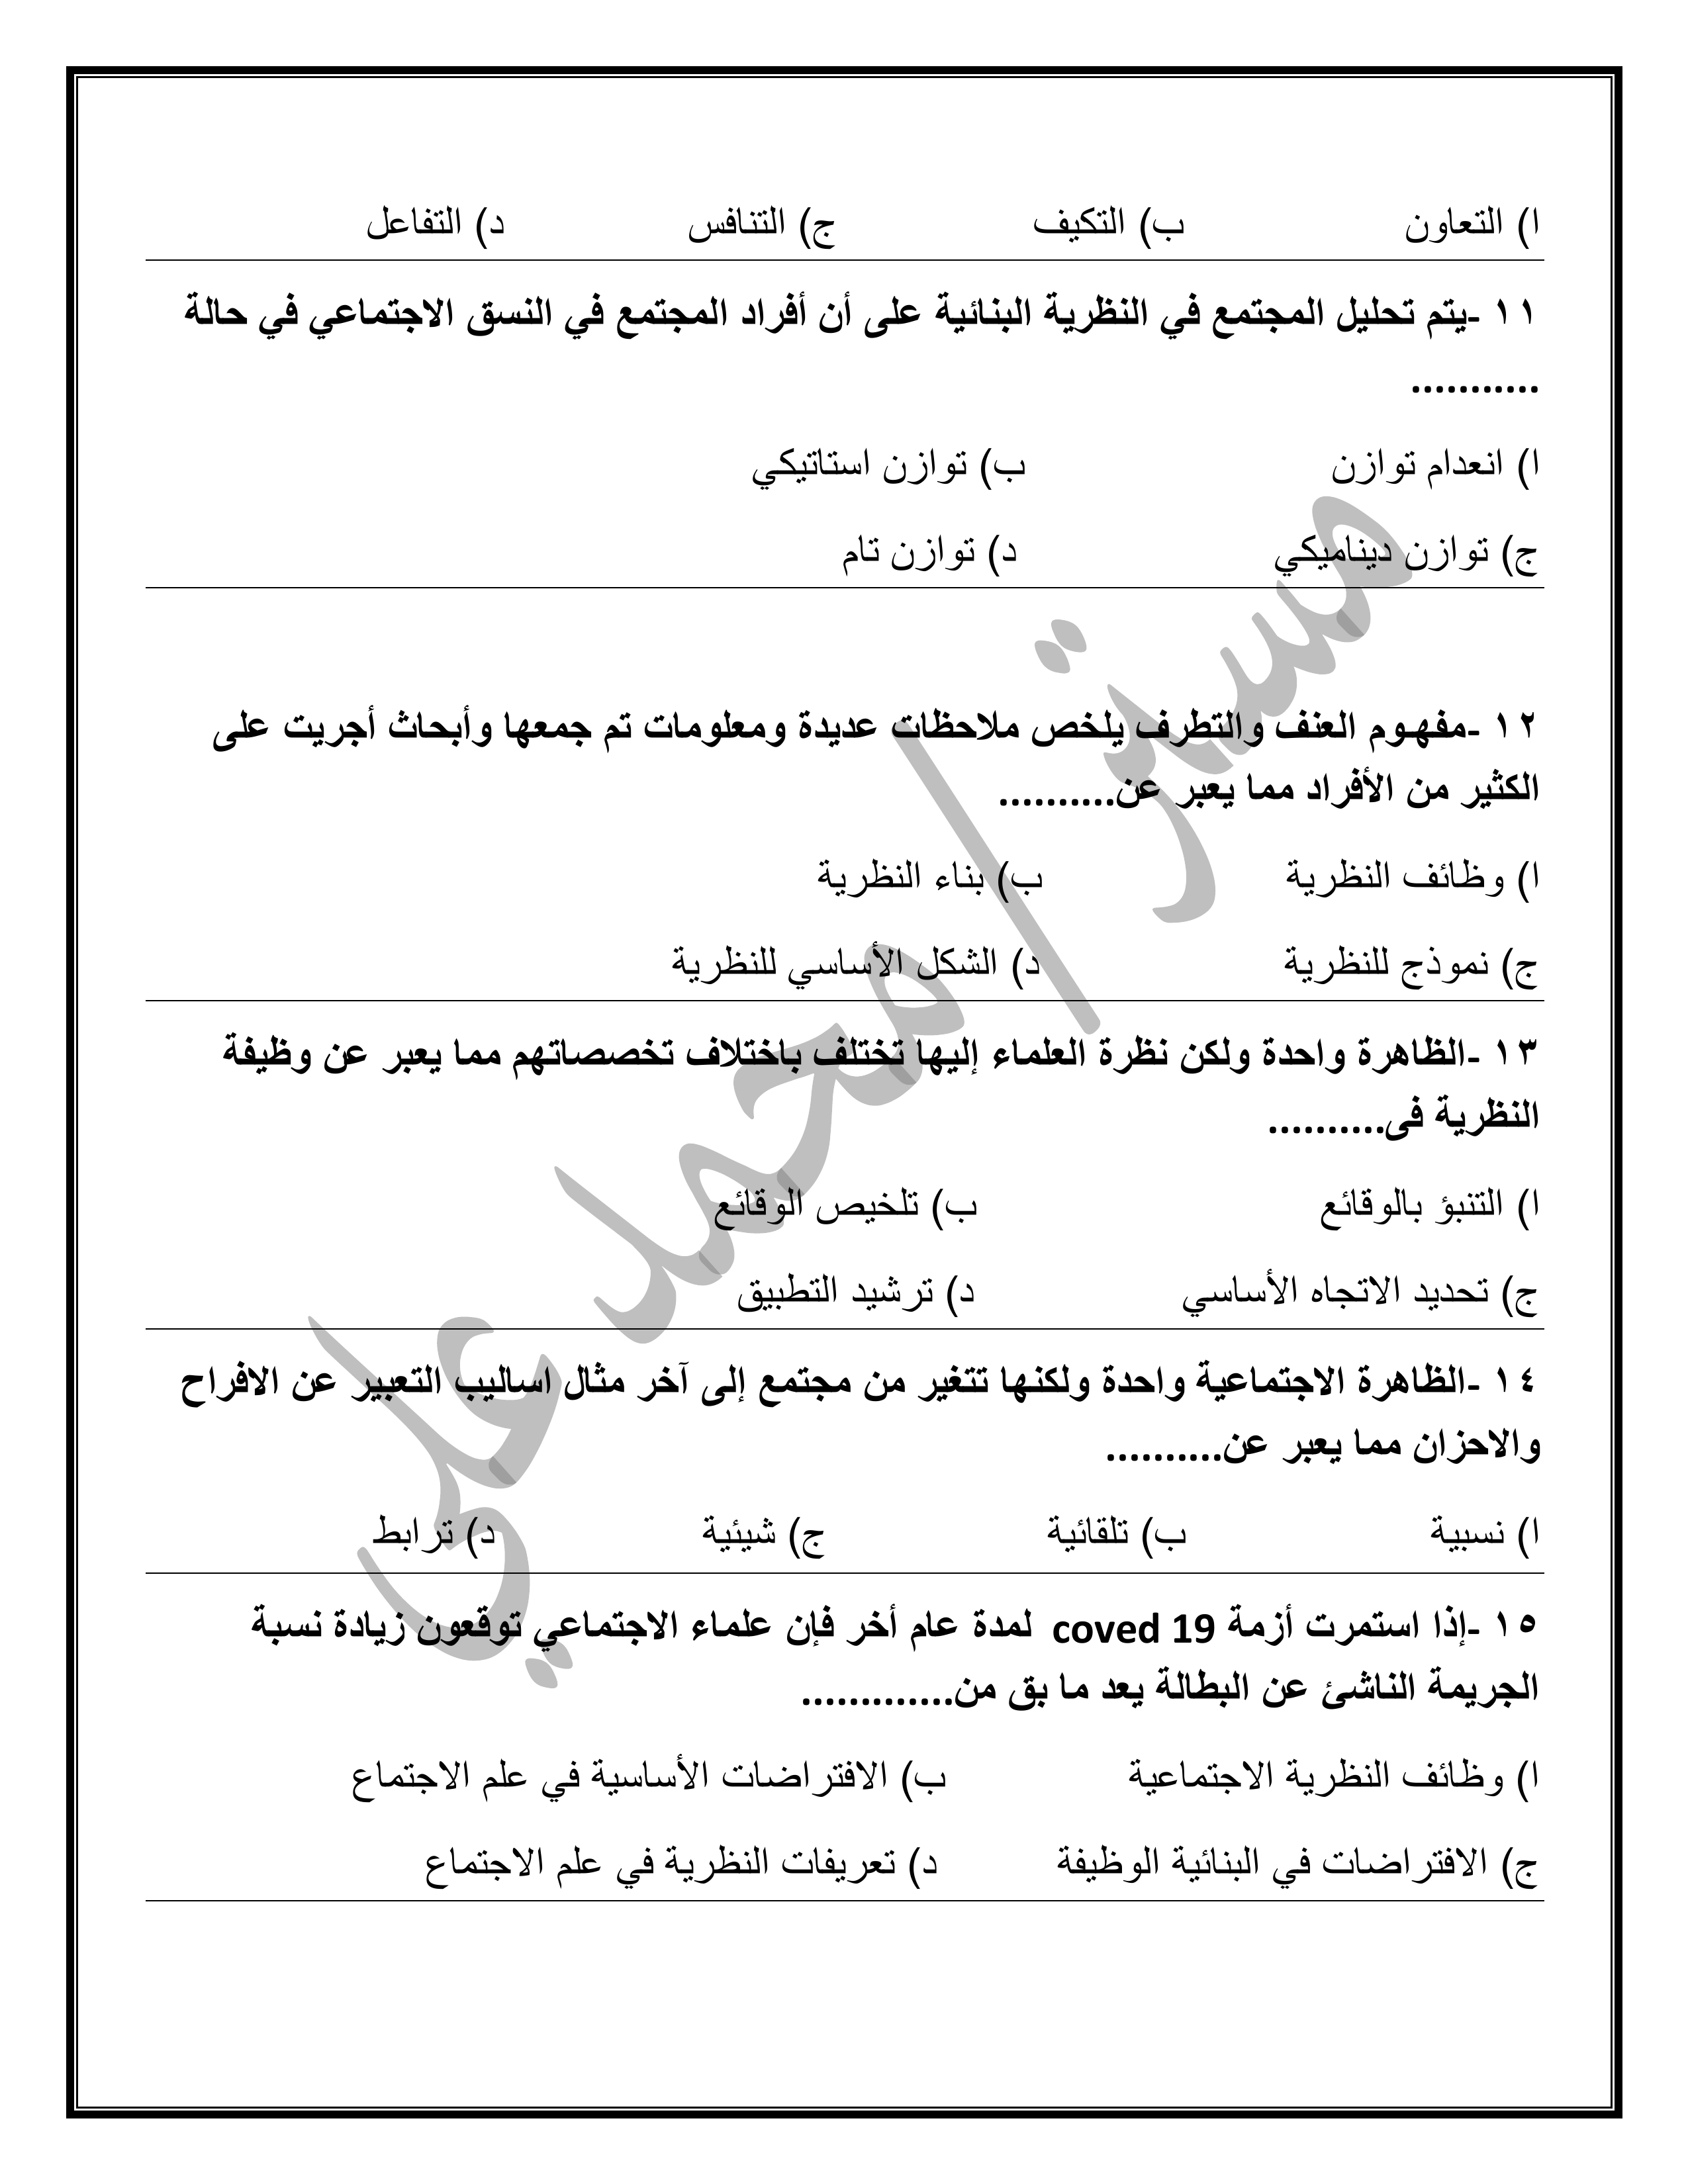 ا) التعاون ب) التكيف ج) التنافس د) التفاعل
١١ -يتم تحليل المجتمع في النظرية البنائية على أن أفراد المجتمع في النسق الاجتماعي في حالة
...........
ا) انعدام توازن ب) توازن استاتيكي
ج) توازن ديناميكي د) توازن تام
١٢ -مفهوم العنف والتطرف يلخص ملاحظات عديدة ومعلومات تم جمعها وأبحاث أجريت على
الكثير من الأفراد مما يعبر عن..........
ا) وظائف النظرية ب) بناء النظرية
ج) نموذج للنظرية د) الشكل الأساسي للنظرية
١٣ -الظاهرة واحدة ولكن نظرة العلماء إليها تختلف باختلاف تخصصاتهم مما يعبر عن وظيفة
النظرية فى..........
ا) التنبؤ بالوقائع ب) تلخيص الوقائع
ج) تحديد الاتجاه الأساسي د) ترشيد التطبيق
١٤ -الظاهرة الاجتماعية واحدة ولكنها تتغير من مجتمع إلى آخر مثال اساليب التعبير عن الافراح
والاحزان مما يعبر عن..........
ا) نسبية ب) تلقائية ج) شيئية د) ترابط
١٥ -إذا استمرت أزمة coved 19 لمدة عام أخر فإن علماء الاجتماعي توقعون زيادة نسبة
الجريمة الناشئ عن البطالة يعد ما بق من.............
ا) وظائف النظرية الاجتماعية ب) الافتراضات الأساسية في علم الاجتماع
ج) الافتراضات في البنائية الوظيفة د) تعريفات النظرية في علم الاجتماع
مستر/محمد علي